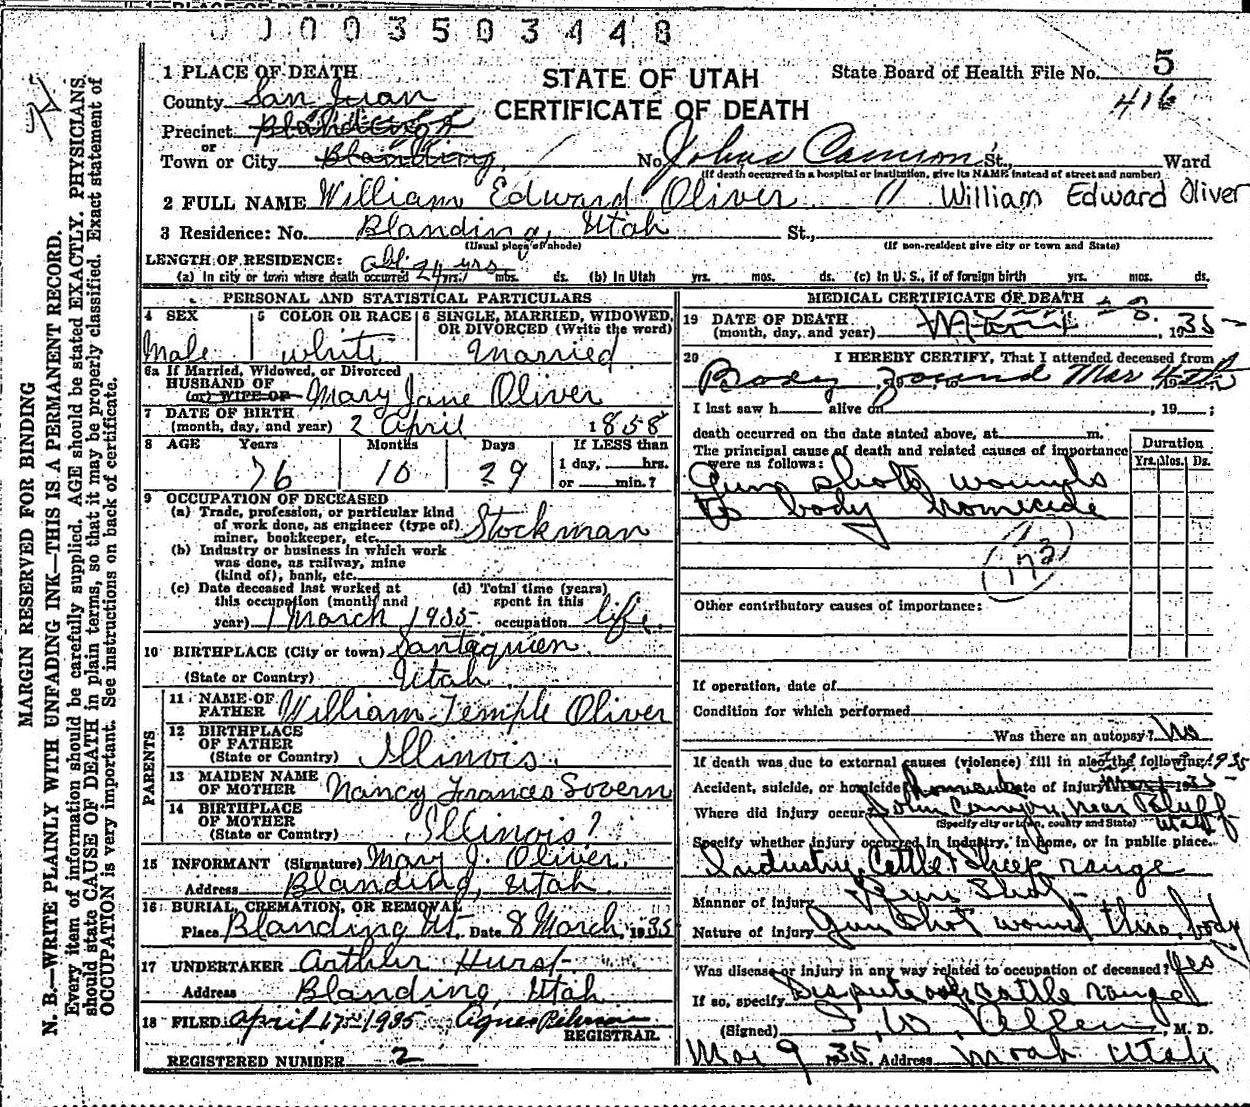 0 0 0 3 5 0 3 4 4 8
1 PLACE OF DEATH
STATE OF UTAH
CERTIFICATE OF DEATH
State Board of Health File No. 5
416
County San Juan
Precinct Blanding
or
Town or City Blanding, No. Johns Canyon St., Ward
(If death occurred in a hospital or institution, give its NAME instead of street and number)
2 FULL NAME William Edward Oliver William Edward Oliver
3 Residence: No. Blanding, Utah St.,
(Usual place of abode) (If non-resident give city or town and State)
LENGTH OF RESIDENCE:
(a) In city or town where death occurred abt. 24 yrs. mos. ds. (b) In Utah yrs. mos. ds. (c) In U. S., if of foreign birth yrs. mos. ds.
PERSONAL AND STATISTICAL PARTICULARS
4 SEX Male
5 COLOR OR RACE white
6 SINGLE, MARRIED, WIDOWED, OR DIVORCED (Write the word) Married
6a If Married, Widowed, or Divorced
HUSBAND OF
(or) WIFE OF Mary Jane Oliver
7 DATE OF BIRTH
(month, day, and year) 2 April 1858
8 AGE Years Months Days If LESS than
76 10 29 1 day, hrs.
or min.?
9 OCCUPATION OF DECEASED
(a) Trade, profession, or particular kind
of work done, as engineer (type of)
miner, bookkeeper, etc. Stockman
(b) Industry or business in which work
was done, as railway, mine
(kind of), bank, etc.
(c) Date deceased last worked at
this occupation (month and
year) 1 March 1935
(d) Total time (years)
spent in this
occupation life.
10 BIRTHPLACE (City or town) Santaquien
(State or Country) Utah
PARENTS
11 NAME OF
FATHER William Temple Oliver
12 BIRTHPLACE
OF FATHER
(State or Country) Illinois.
13 MAIDEN NAME
OF MOTHER Nancy Frances Sovern
14 BIRTHPLACE
OF MOTHER
(State or Country) Illinois?
15 INFORMANT (Signature) Mary J. Oliver.
Address Blanding, Utah
16 BURIAL, CREMATION, OR REMOVAL
Place Blanding Ut. Date 8 March, 1935
17 UNDERTAKER Arthur Hurst
Address Blanding, Utah
18 FILED April 17 1935 Agnes
REGISTRAR.
REGISTERED NUMBER 2
MEDICAL CERTIFICATE OF DEATH
19 DATE OF DEATH
(month, day, and year) , 1935
20 I HEREBY CERTIFY, That I attended deceased from
Body found Mar 4th
I last saw h alive on , 19 ;
death occurred on the date stated above, at m.
The principal cause of death and related causes of importance
were as follows:
Duration
Yrs. Mos. Ds.
Gun shots wounds
to body homicide
173
Other contributory causes of importance:
If operation, date of
Condition for which performed
Was there an autopsy? No
If death was due to external causes (violence) fill in also the following: 1935
Accident, suicide, or homicide? homicide Date of injury 1935
Where did injury occur? John Canyon, near Bluff
Utah
(Specify city or town, county and State)
Specify whether injury occurred in industry, in home, or in public place.
Industry, Cattle & Sheep range
Manner of injury Gun Shot
Nature of injury Gun Shot wound thru body
Was disease or injury in any way related to occupation of deceased? Yes
If so, specify Dispute over cattle range
(Signed) , M. D.
Mar 9 1935. Address Moab Utah
MARGIN RESERVED FOR BINDING
N. B.—WRITE PLAINLY WITH UNFADING INK—THIS IS A PERMANENT RECORD.
Every item of information should be carefully supplied. AGE should be stated EXACTLY. PHYSICIANS
should state CAUSE OF DEATH in plain terms, so that it may be properly classified. Exact statement of
OCCUPATION is very important. See instructions on back of certificate.